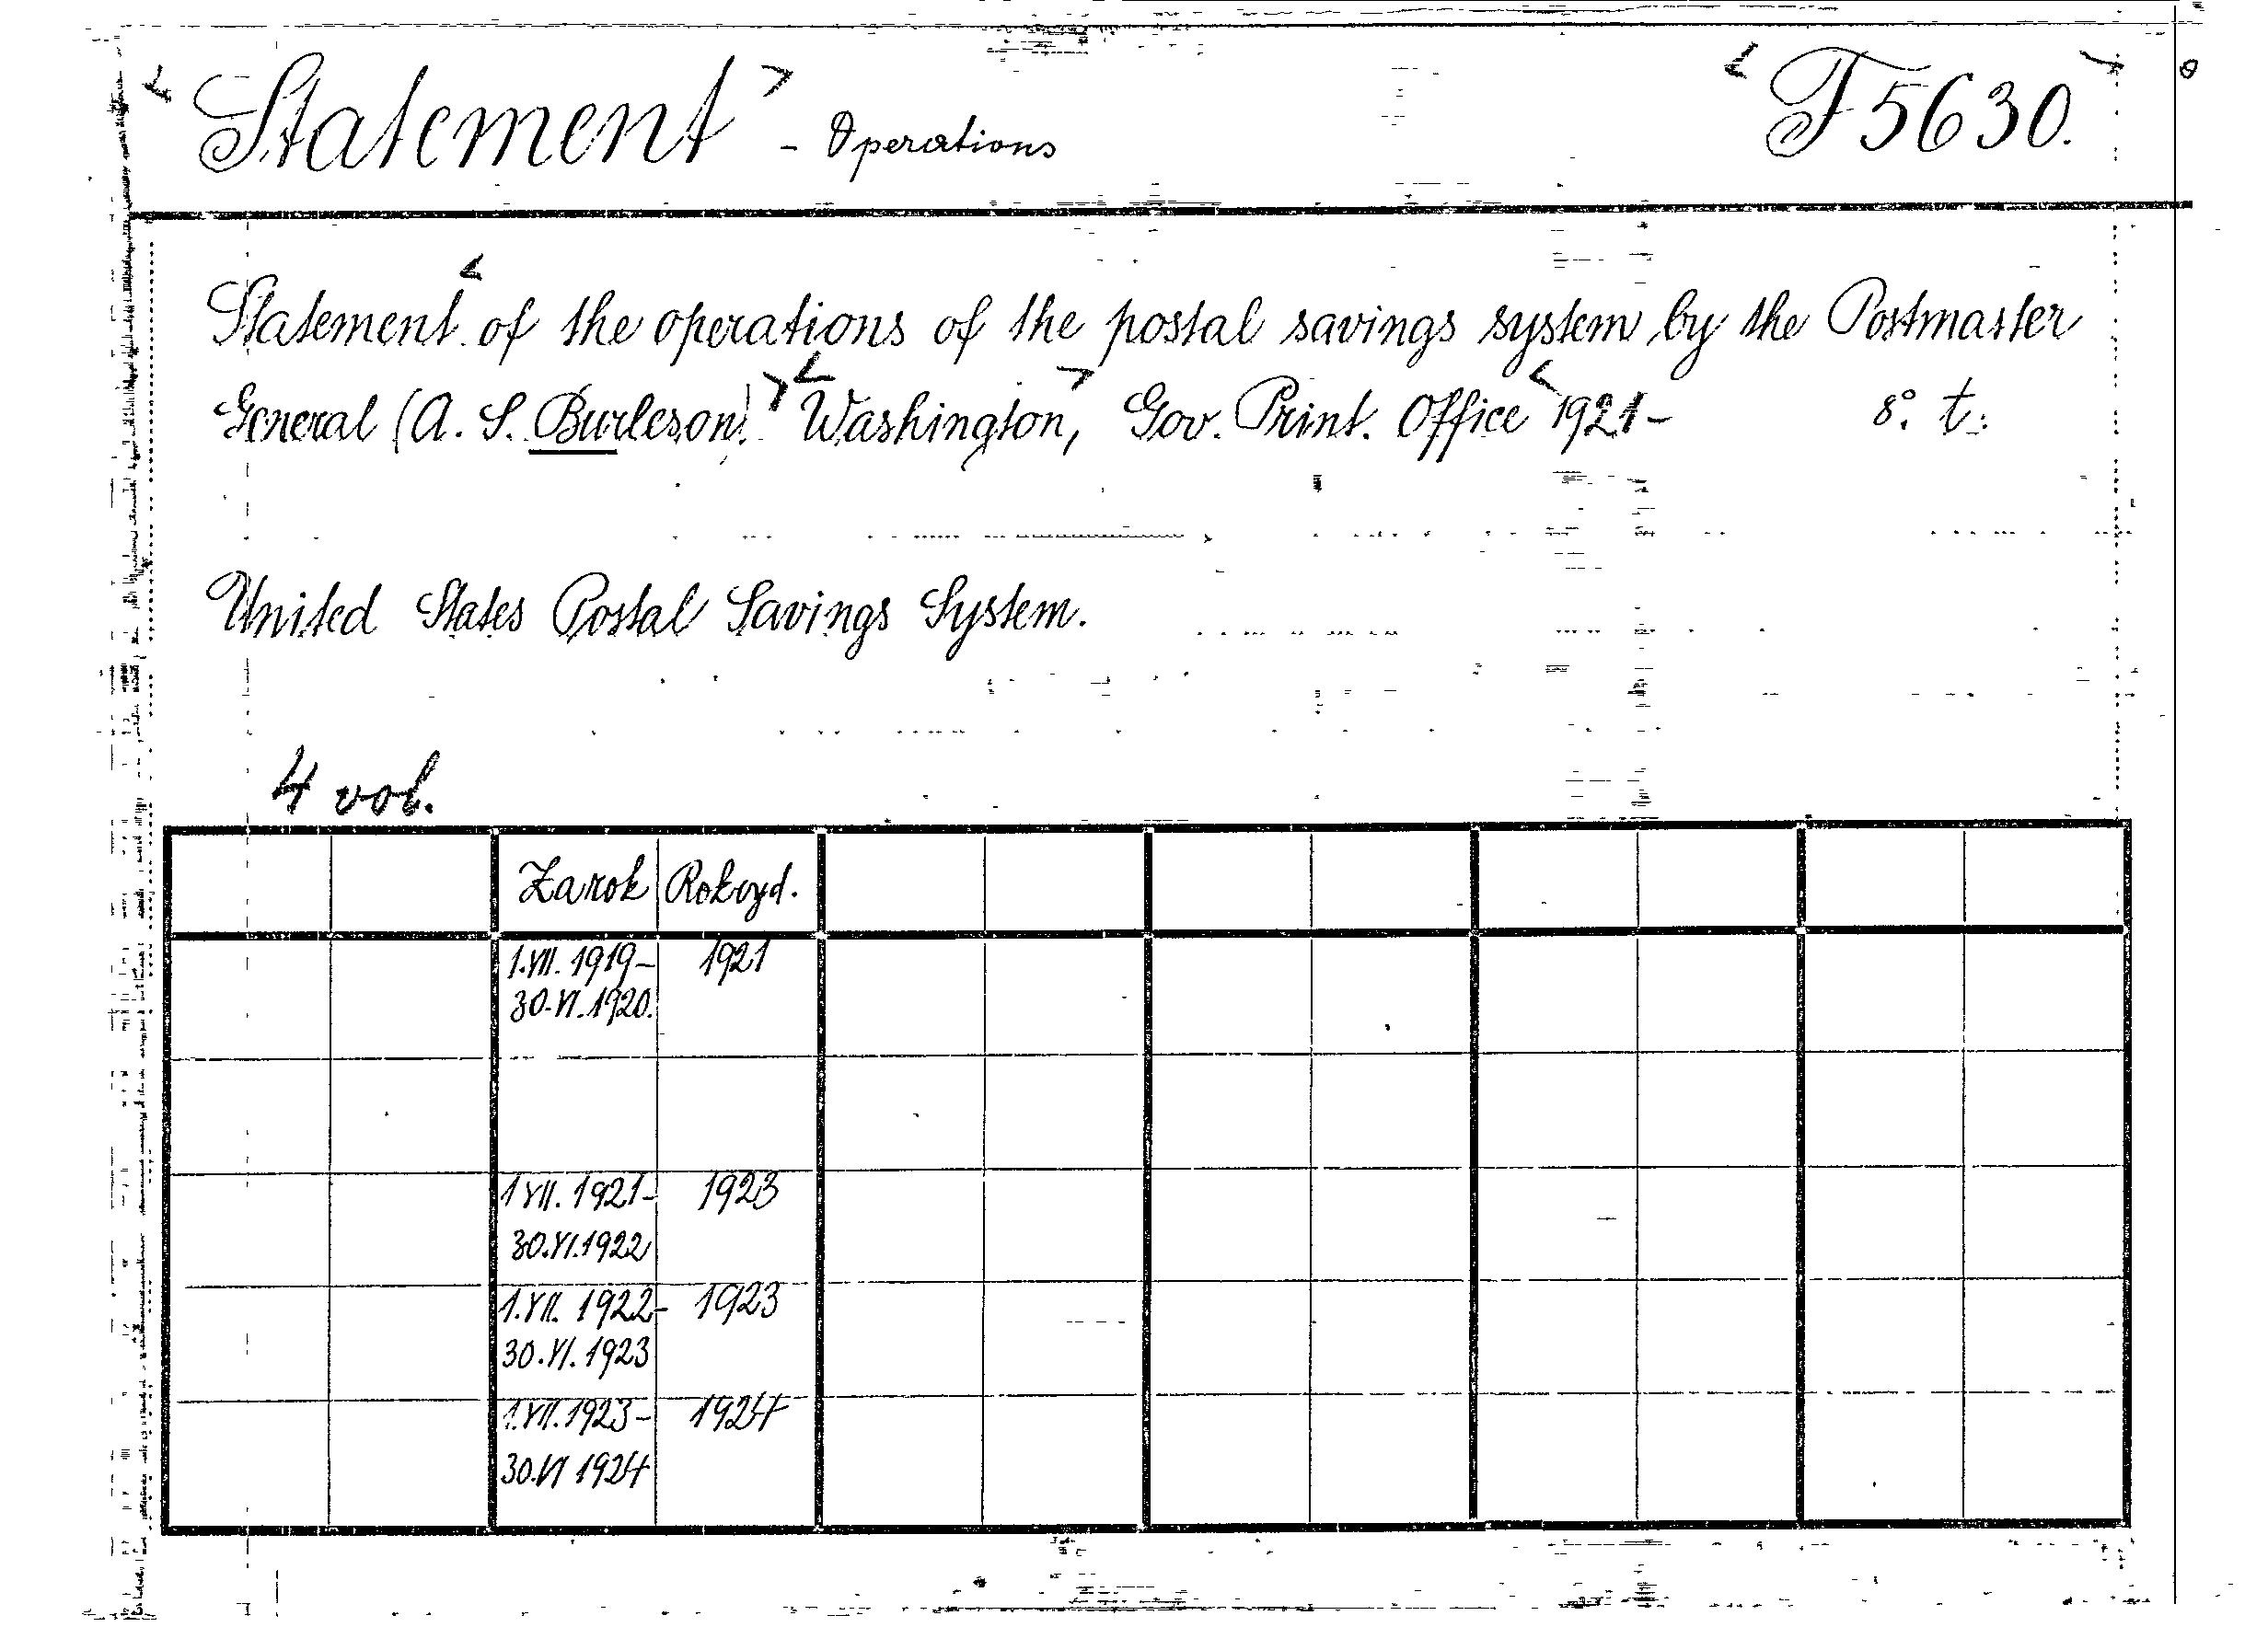 Statement - Operations F 5630.
Statement of the operations of the postal savings system by the Postmaster
General (A. S. Burleson). Washington, Gov. Print. Office 1921- 8°. t.:
United States Postal Savings System.
4 vol.
Za rok Rok vyd.
1.VII. 1919- 1921
30.VI.1920.
1 VII. 1921- 1923
30.VI.1922
1.VII. 1922- 1923
30.VI. 1923
1.VII.1923- 1924
30.VI 1924